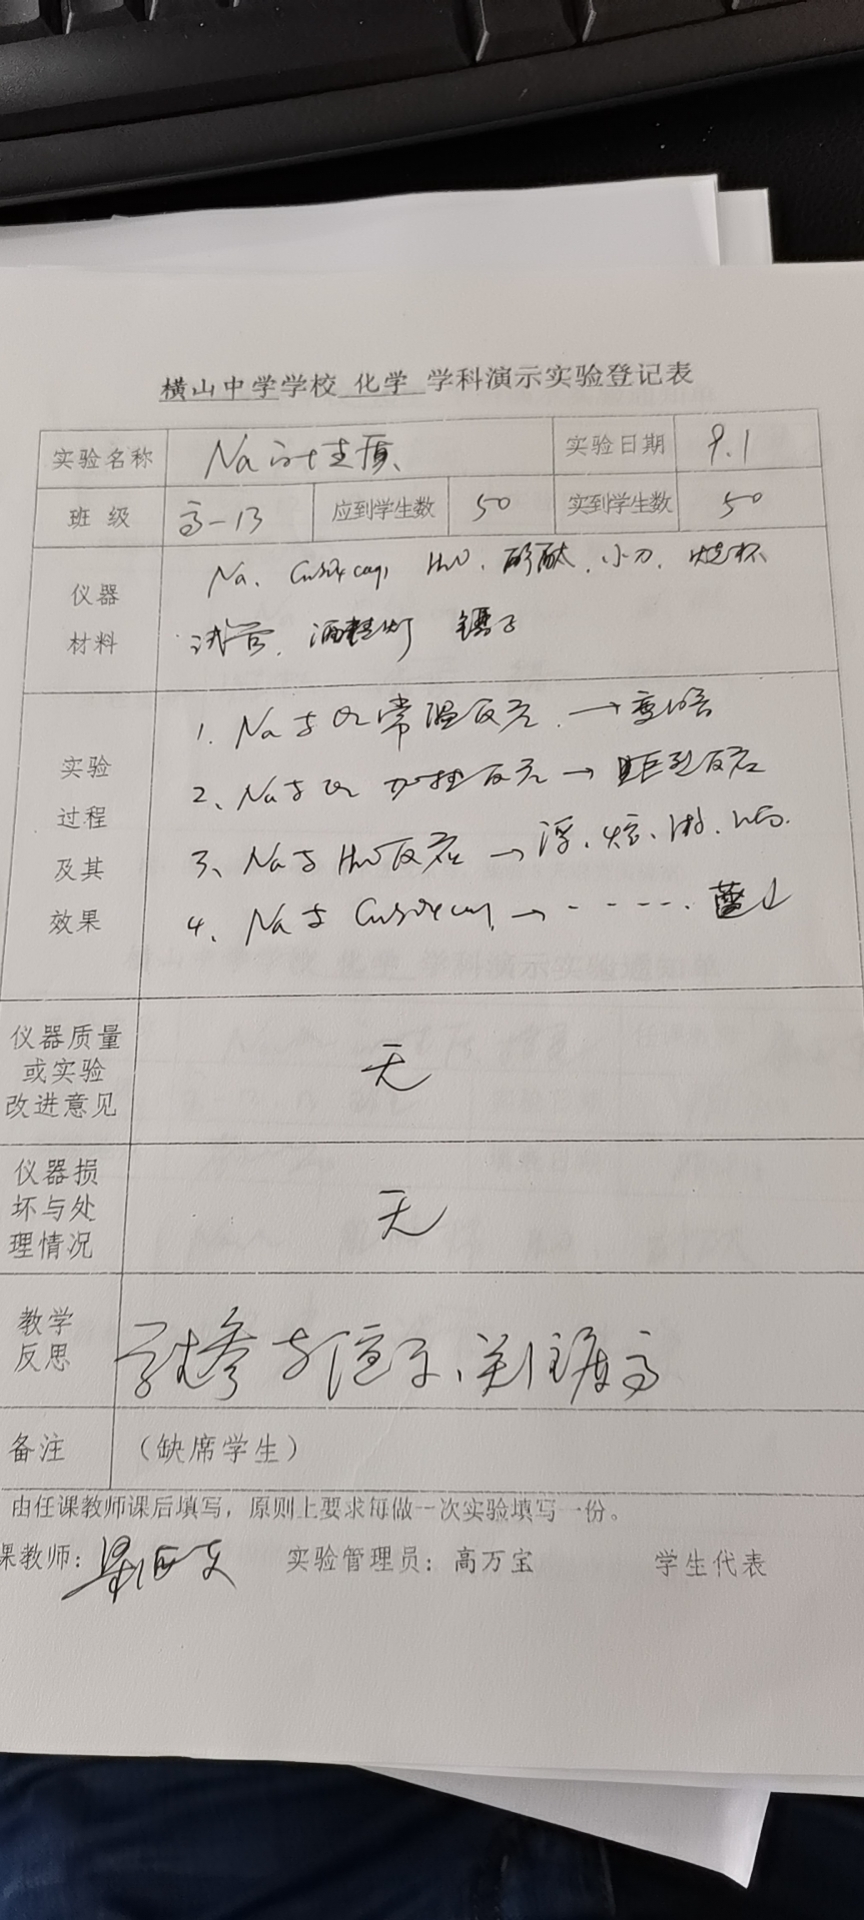 横山中学学校 化学 学科演示实验登记表
实验名称 Na的性质 实验日期 9.1
班 级 高一13 应到学生数 50 实到学生数 50
仪器 Na、CuSO4(aq) H2O、酚酞、小刀、烧杯
材料 试管、酒精灯 镊子
1、Na与O2常温反应 → 变暗
实验
2、Na与O2 反应 → 反应
过程
3、Na与H2O反应 → 浮、熔、游、响
及其
效果 4、Na与CuSO4(aq) → ----- 蓝↓
仪器质量
或实验 无
改进意见
仪器损
坏与处 无
理情况
教学
反思 高
备注 （缺席学生）
由任课教师课后填写，原则上要求每做一次实验填写一份。
课教师： 实验管理员：高万宝 学生代表